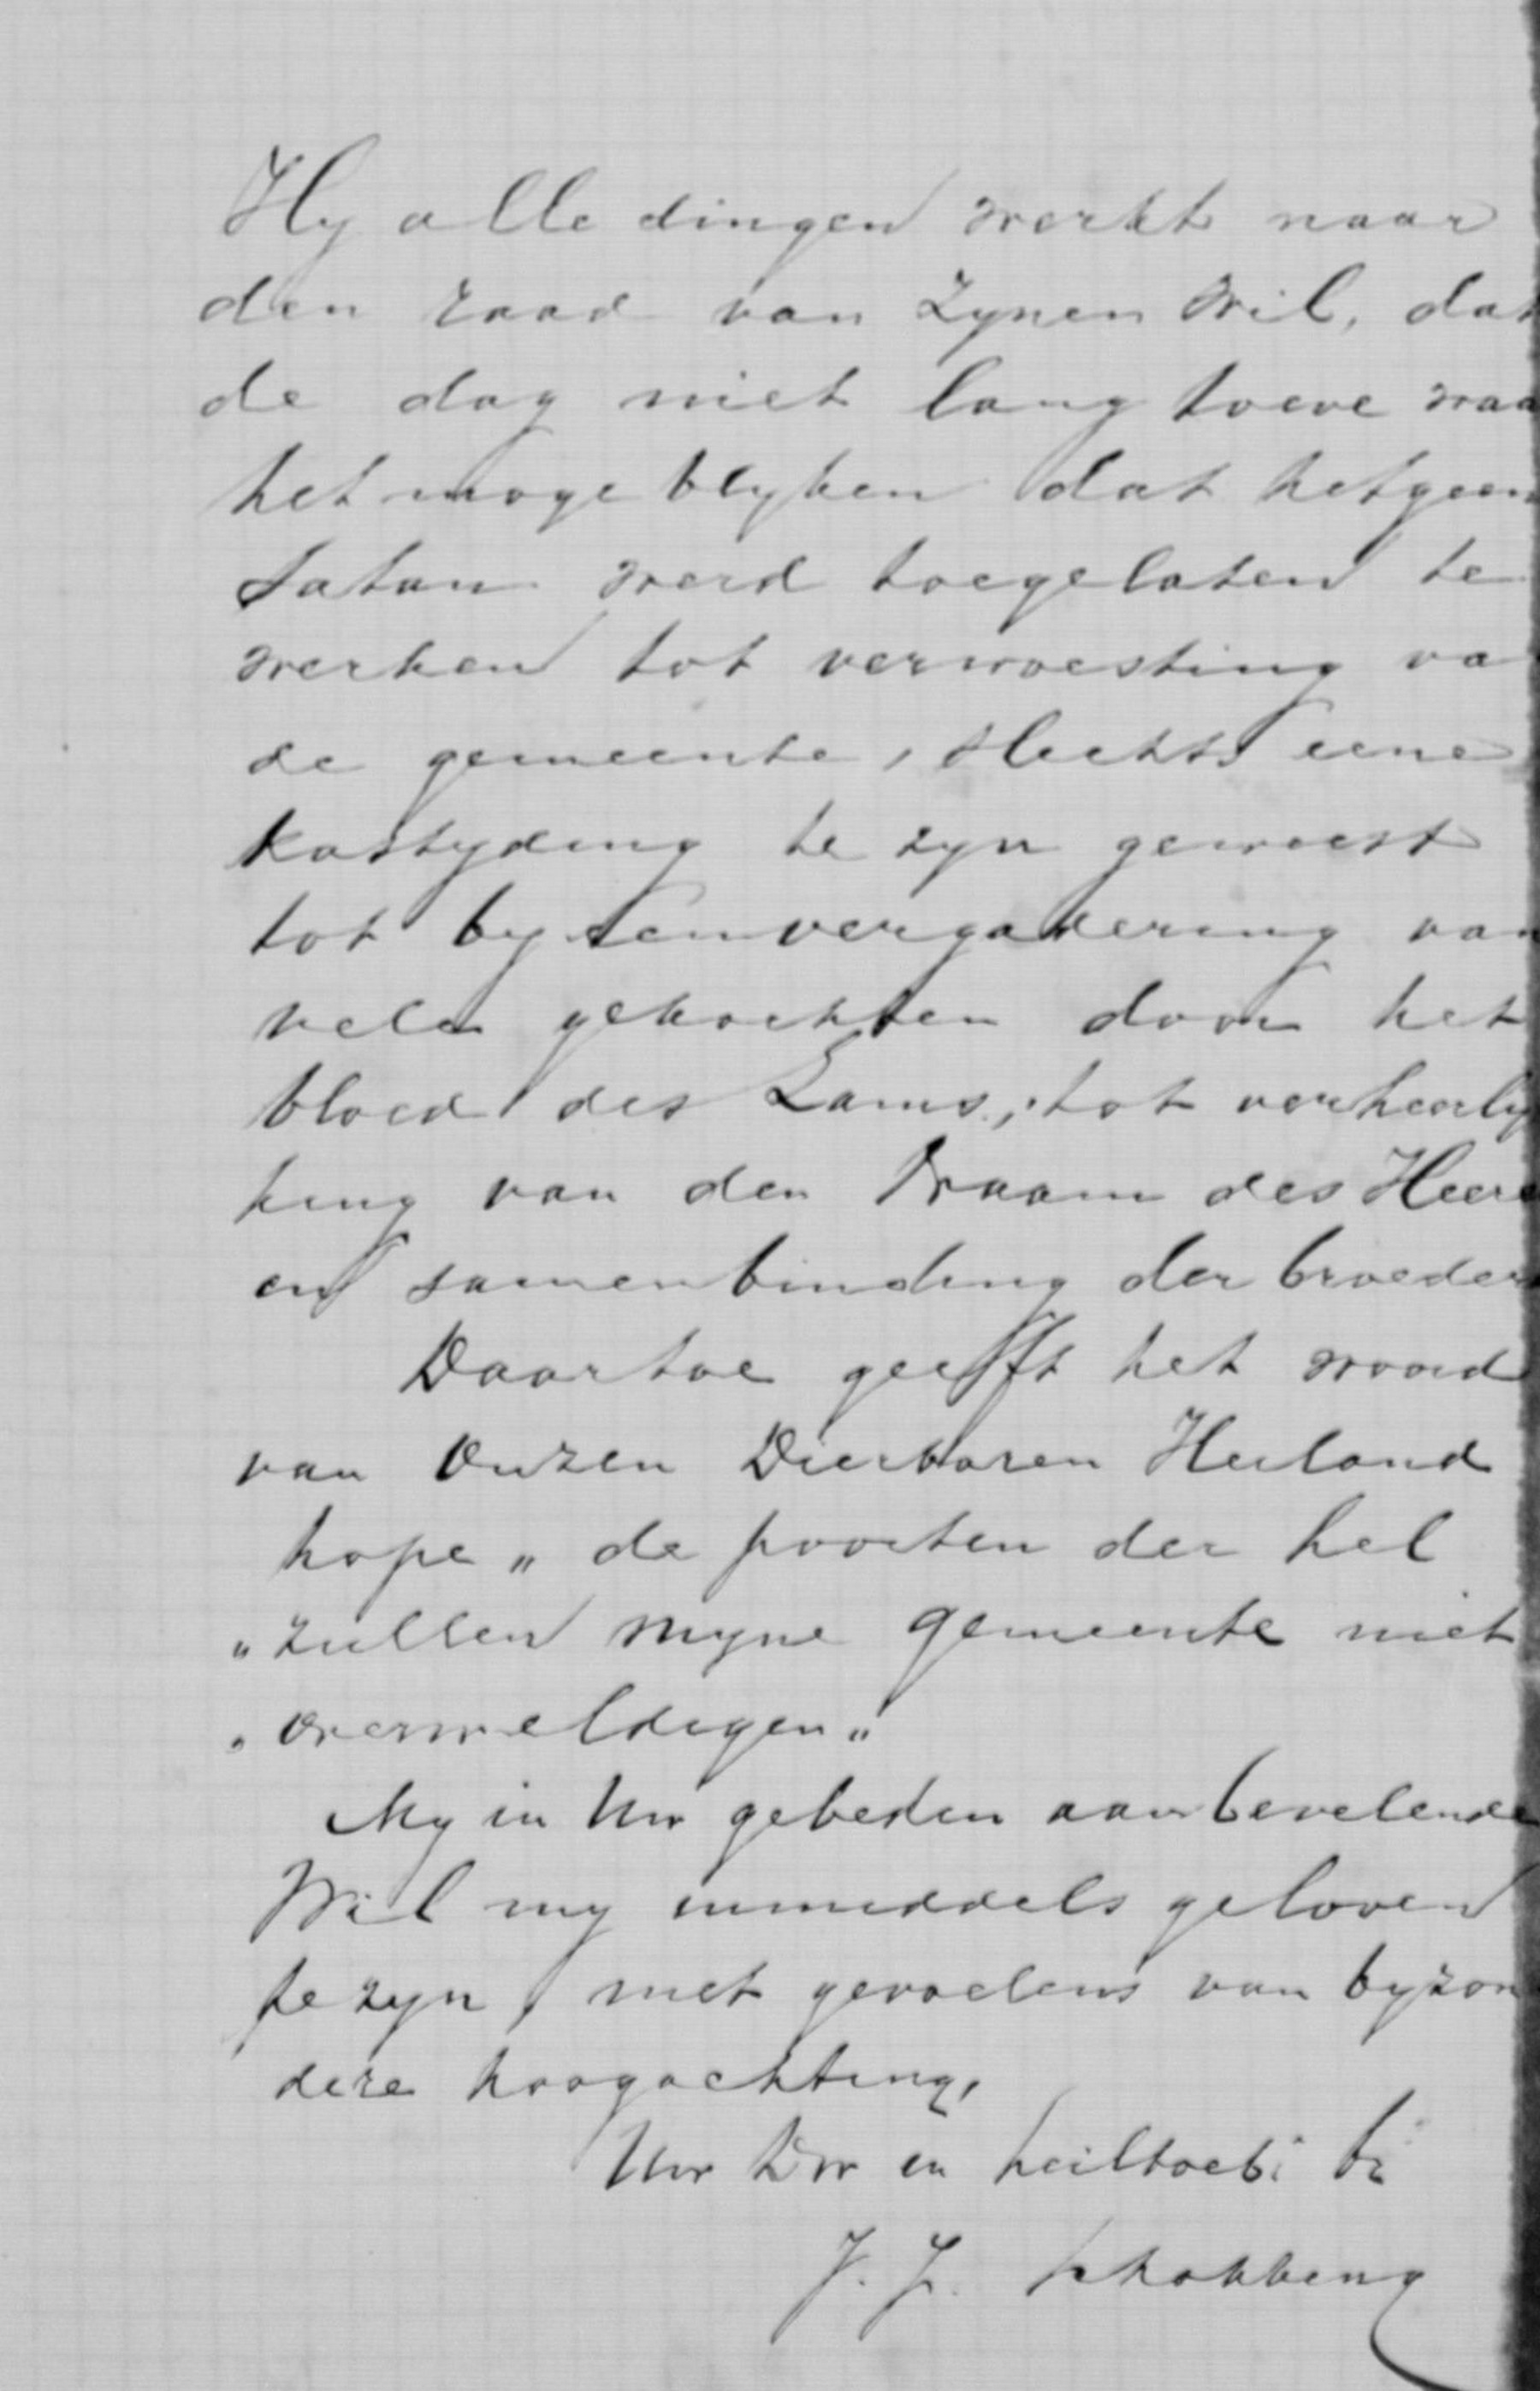 Hy alle dingen werkt naar
den raad van Zynen Wil, dat
de dag niet lang toeve waa
het moge blyken dat hetgeen
Satan werd toegelaten te
werken tot verwoesting va
de gemeente, slechts eene
kastyding te zyn geweest
tot byeenvergadering van
vele gekochten door het
bloed des Lams, tot verheerly
king van den Naam des Heere
en samenbinding der broeder
Daartoe geefft het woord
van Onzen Dierbaren Heiland
hope „ de poorten der hel
„ zullen myne gemeente niet
„ overweldigen „
My in Uw gebeden aanbevelende
Wil my inmiddels geloven
te zyn, met gevoelens van byzon
dere hoogachting,
Uw Dw en heiltoeb: br
J. J.